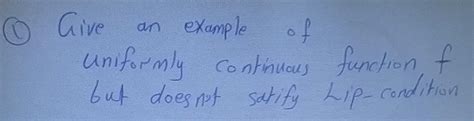 ① Give an example of
uniformly continuous function f
but does not satify Lip-condition